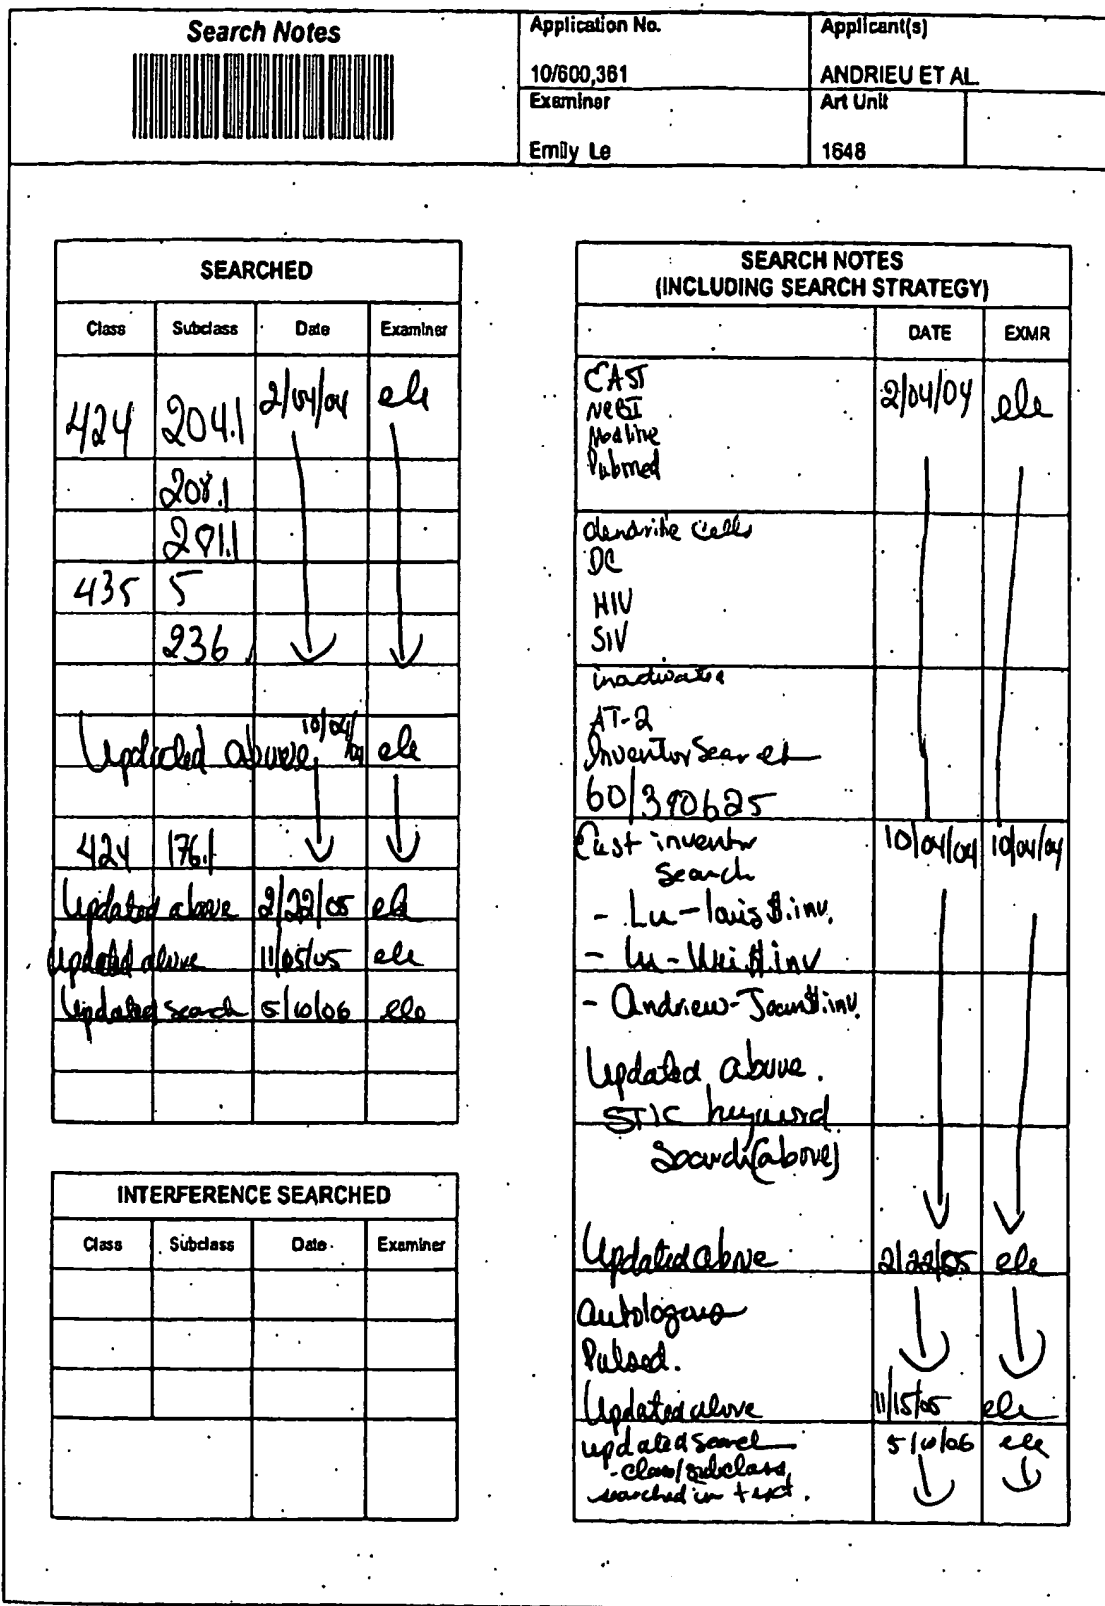 Search Notes
Application No.
Applicant(s)
10/600,361
ANDRIEU ET AL.
Examiner
Art Unit
Emily Le
1648
SEARCHED
Class Subclass Date Examiner
424 204.1 2/04/04 ele
208.1
201.1
435 5
236
Updated above 10/04/04 ele
424 176.1
Updated above 2/22/05 ele
Updated above 11/05/05 ele
Updated search 5/10/06 ele
INTERFERENCE SEARCHED
Class Subclass Date Examiner
SEARCH NOTES
(INCLUDING SEARCH STRATEGY)
DATE EXMR
EAST 2/04/04 ele
NCBI
Medline
Pubmed
dendrite cells
DC
HIV
SIV
AT-2
Inventor Search
60/390625
East inventor 10/04/04 10/04/04
search
- Lu-louis$.inv.
- Lu-Wei$.inv
- Andrieu-Jean$.inv.
Updated above.
STIC keyword
Search (above)
Updated above 2/22/05 ele
autologous
Pulsed.
Updated above 11/15/05 ele
updated search 5/10/06 ele
- class/subclass
searched in text.